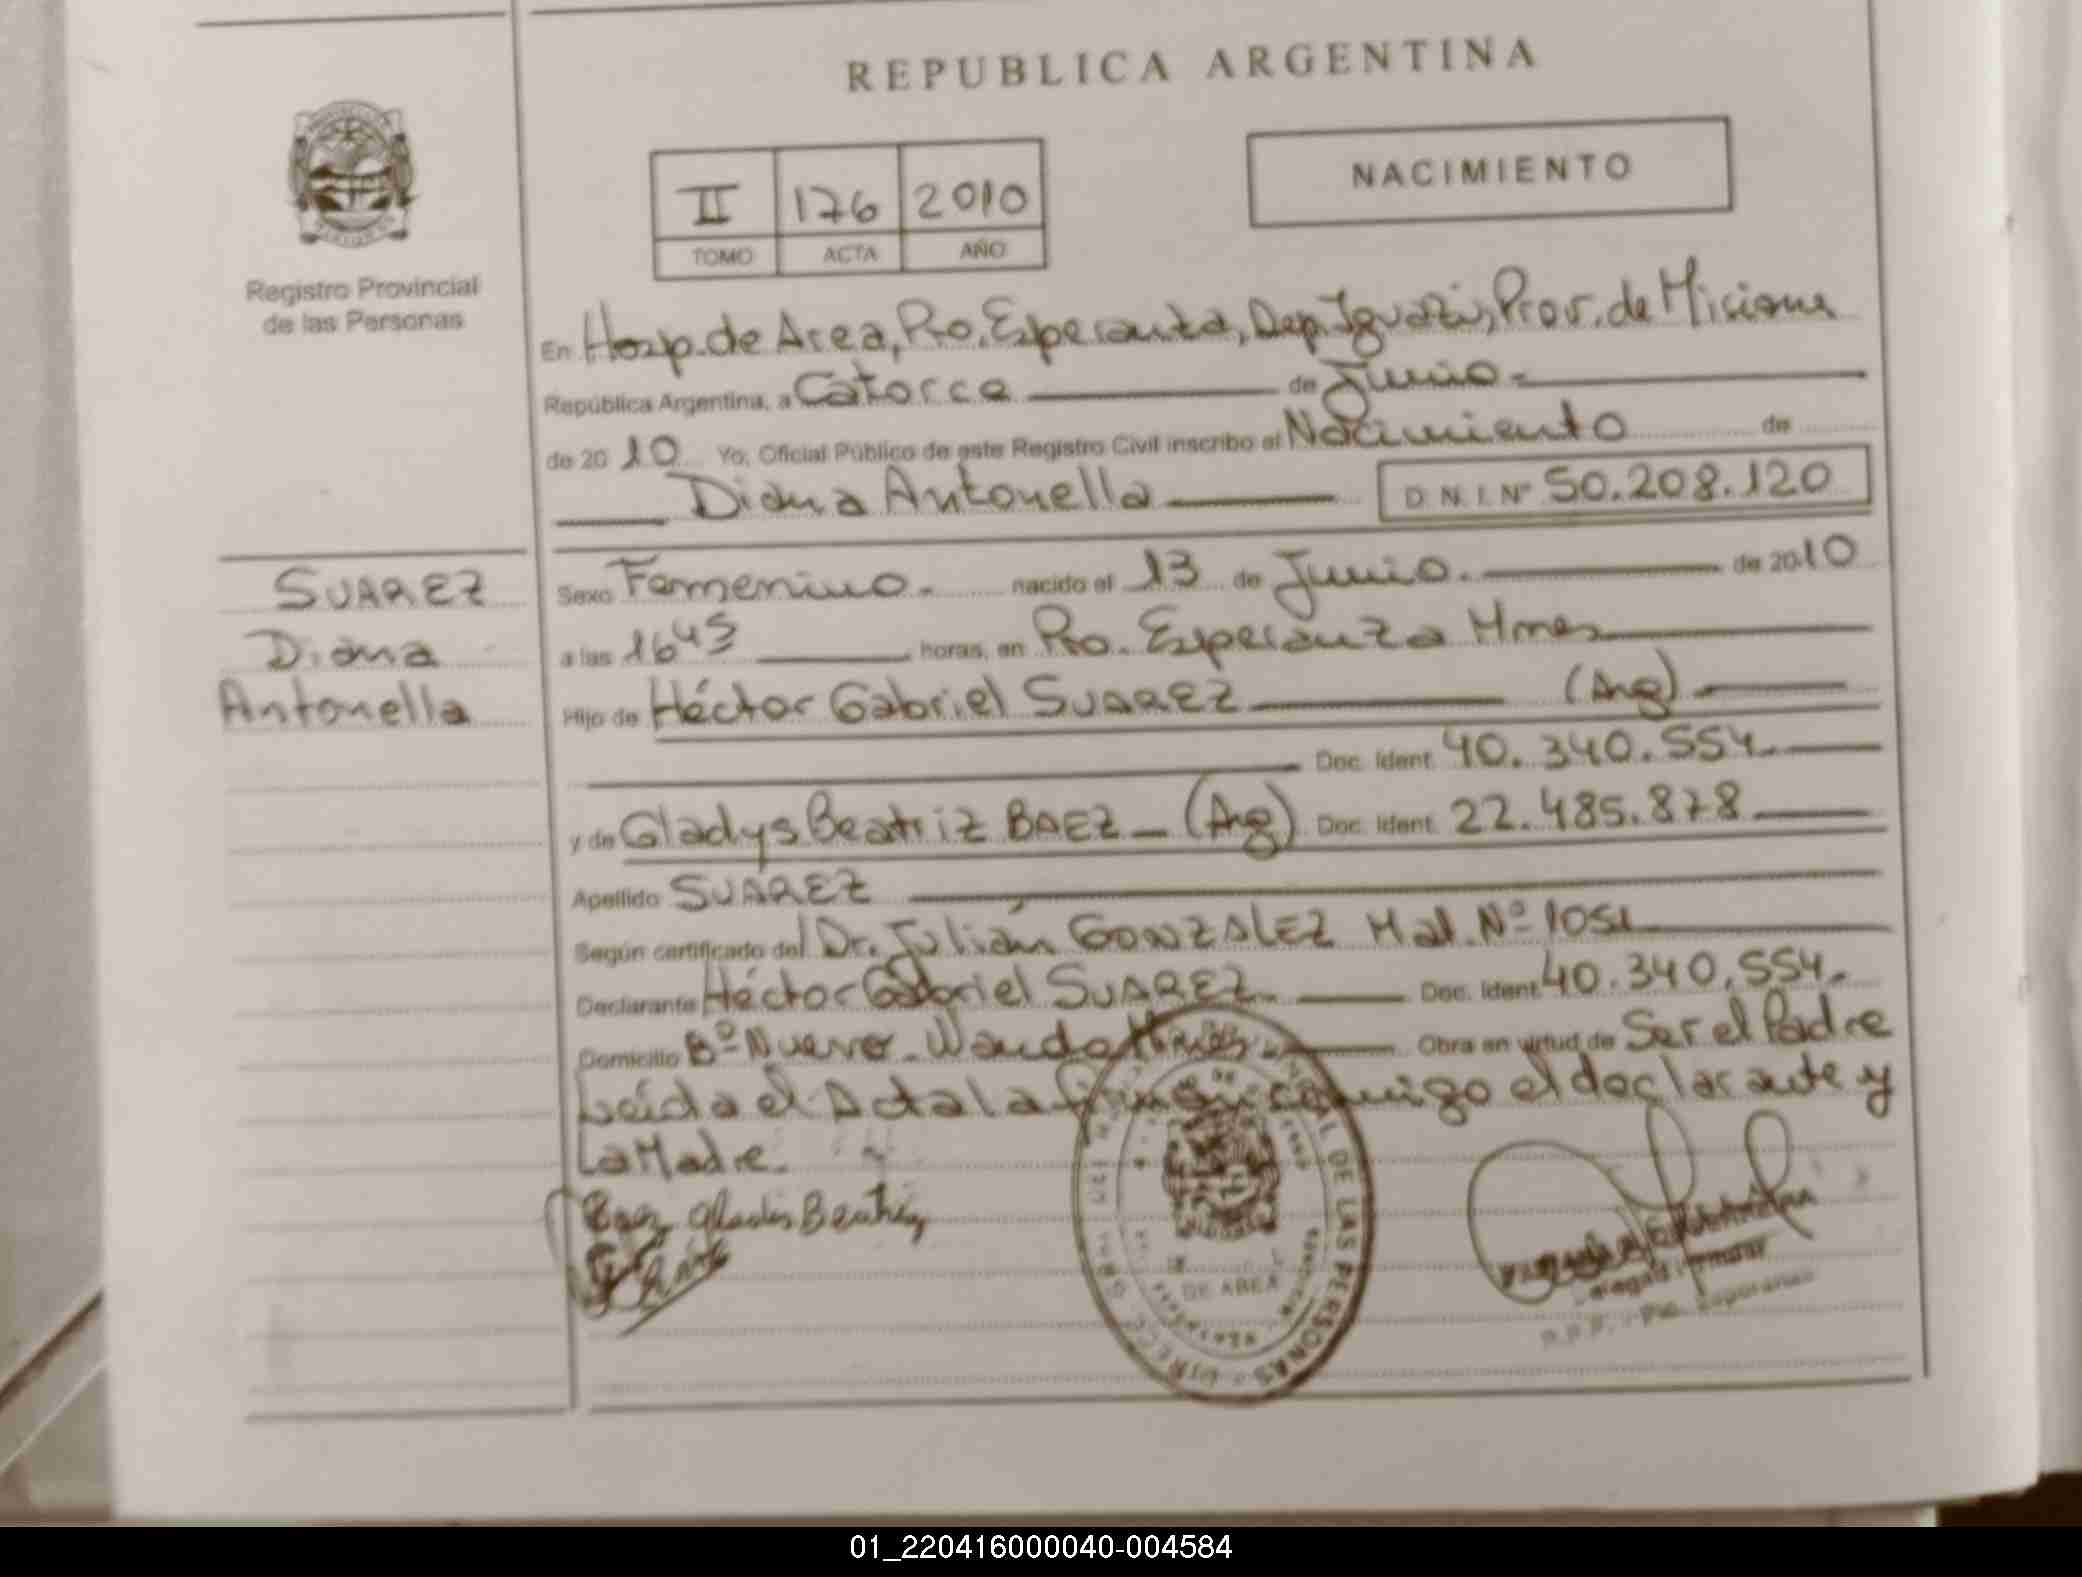 REPUBLICA ARGENTINA
NACIMIENTO
II 176 2010
TOMO ACTA AÑO
Registro Provincial
de las Personas
En Hosp. de Area, Pto. Esperanza, Dep. Iguazú, Prov. de Misiones
República Argentina, a Catorce de Junio.-
de 2010 Yo, Oficial Público de este Registro Civil inscribo el Nacimiento de
Diana Antonella D.N.I. Nº 50.208.120
SUAREZ
Diana
Antonella
Sexo Femenino.- nacido el 13 de Junio. de 2010
a las 16 45 horas, en Pto. Esperanza Mnes
Hijo de Héctor Gabriel SUAREZ (Arg)
Doc. Ident. 40.340.554
y de Gladys Beatriz BAEZ (Arg) Doc. Ident. 22.485.878
Apellido SUAREZ
Según certificado del Dr. Julián GONZALEZ Mat. Nº 1051
Declarante Héctor Gabriel SUAREZ Doc. Ident. 40.340.554.
Domicilio Bº Nuevo. Wanda Mnes Obra en virtud de Ser el Padre
Leída el Acta la firman conmigo el declarante y
La Madre.
Baez Gladis Beatriz
DE LAS PERSONAS
DE AREA
01_220416000040-004584